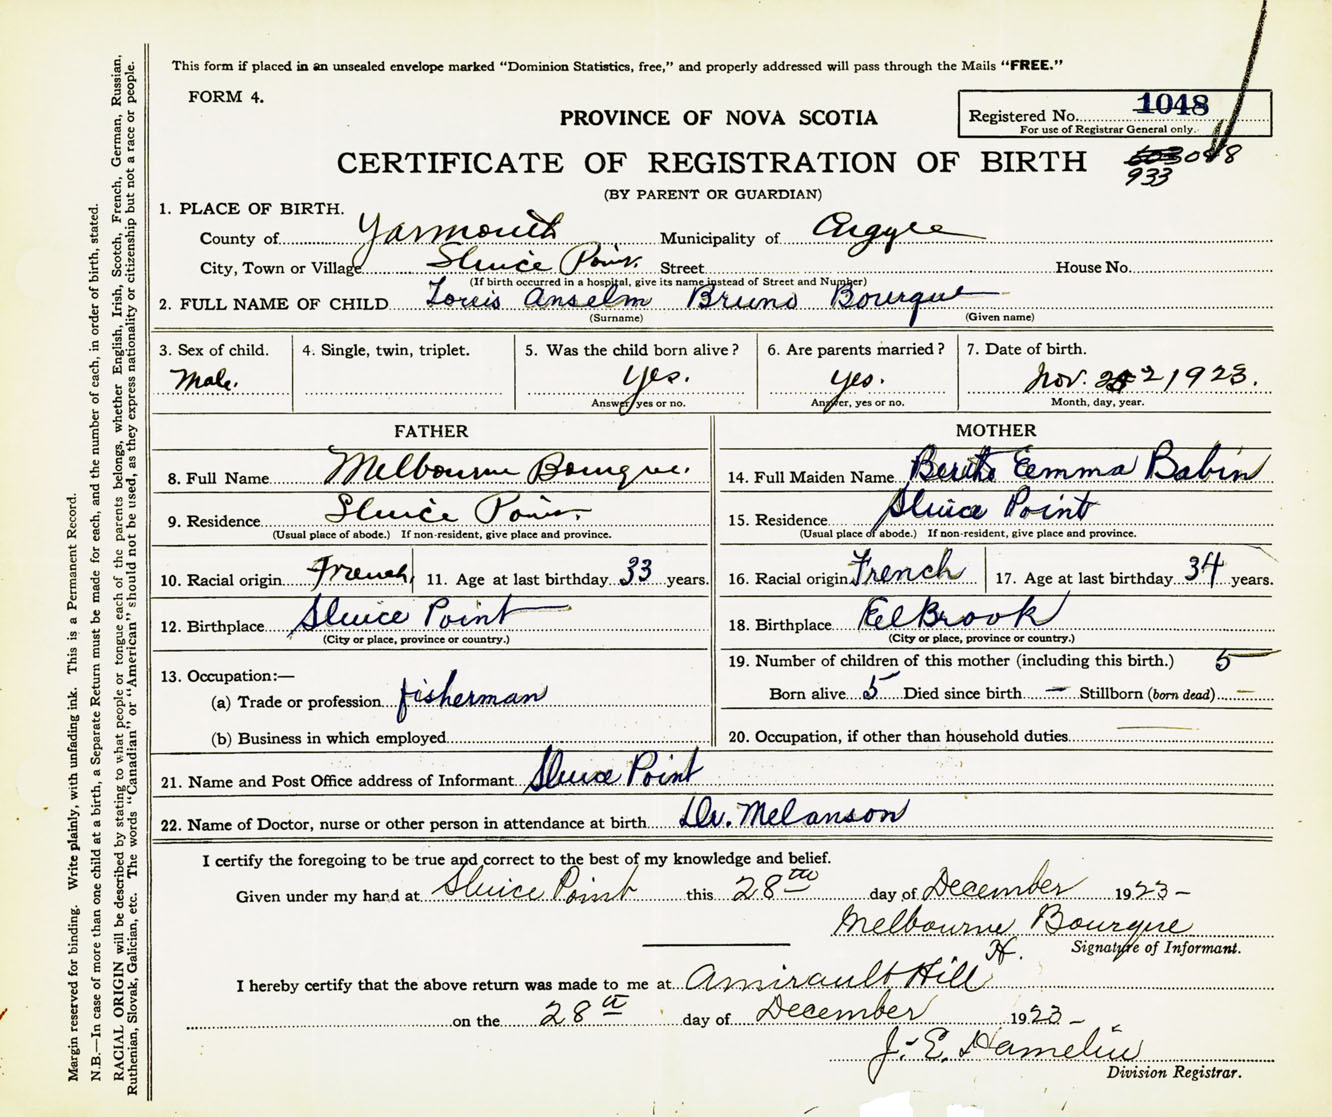 This form if placed in an unsealed envelope marked "Dominion Statistics, free," and properly addressed will pass through the Mails "FREE."
FORM 4.
PROVINCE OF NOVA SCOTIA
Registered No. 1048
For use of Registrar General only.
CERTIFICATE OF REGISTRATION OF BIRTH
933
(BY PARENT OR GUARDIAN)
1. PLACE OF BIRTH.
County of Yarmouth Municipality of Argyle
City, Town or Village Sluice Point Street House No.
(If birth occurred in a hospital, give its name instead of Street and Number)
2. FULL NAME OF CHILD Louis Anselm Bruno Bourque
(Surname) (Given name)
3. Sex of child. 4. Single, twin, triplet. 5. Was the child born alive? 6. Are parents married? 7. Date of birth.
Male. Yes. Yes. Nov. 2 1923.
Answer, yes or no. Answer, yes or no. Month, day, year.
FATHER
8. Full Name Melbourne Bourque.
9. Residence Sluice Point
(Usual place of abode.) If non-resident, give place and province.
10. Racial origin French 11. Age at last birthday 33 years.
12. Birthplace Sluice Point
(City or place, province or country.)
13. Occupation:—
(a) Trade or profession fisherman
(b) Business in which employed
MOTHER
14. Full Maiden Name Emma Babin
15. Residence Sluice Point
(Usual place of abode.) If non-resident, give place and province.
16. Racial origin French 17. Age at last birthday 34 years.
18. Birthplace Eel Brook
(City or place, province or country.)
19. Number of children of this mother (including this birth.) 5
Born alive 5 Died since birth — Stillborn (born dead) —
20. Occupation, if other than household duties —
21. Name and Post Office address of Informant Sluice Point
22. Name of Doctor, nurse or other person in attendance at birth Dr. Melanson
I certify the foregoing to be true and correct to the best of my knowledge and belief.
Given under my hand at Sluice Point this 28th day of December 1923 -
Melbourne Bourque
Signature of Informant.
H.
I hereby certify that the above return was made to me at Amirault Hill
on the 28th day of December 1923 -
J. E. Hamelin
Division Registrar.
Margin reserved for binding. Write plainly, with unfading ink. This is a Permanent Record.
N.B.—In case of more than one child at a birth, a Separate Return must be made for each, and the number of each, in order of birth, stated.
RACIAL ORIGIN will be described by stating to what people or tongue each of the parents belongs, whether English, Irish, Scotch, French, German, Russian,
Ruthenian, Slovak, Galician, etc. The words "Canadian" or "American" should not be used, as they express nationality or citizenship but not a race or people.